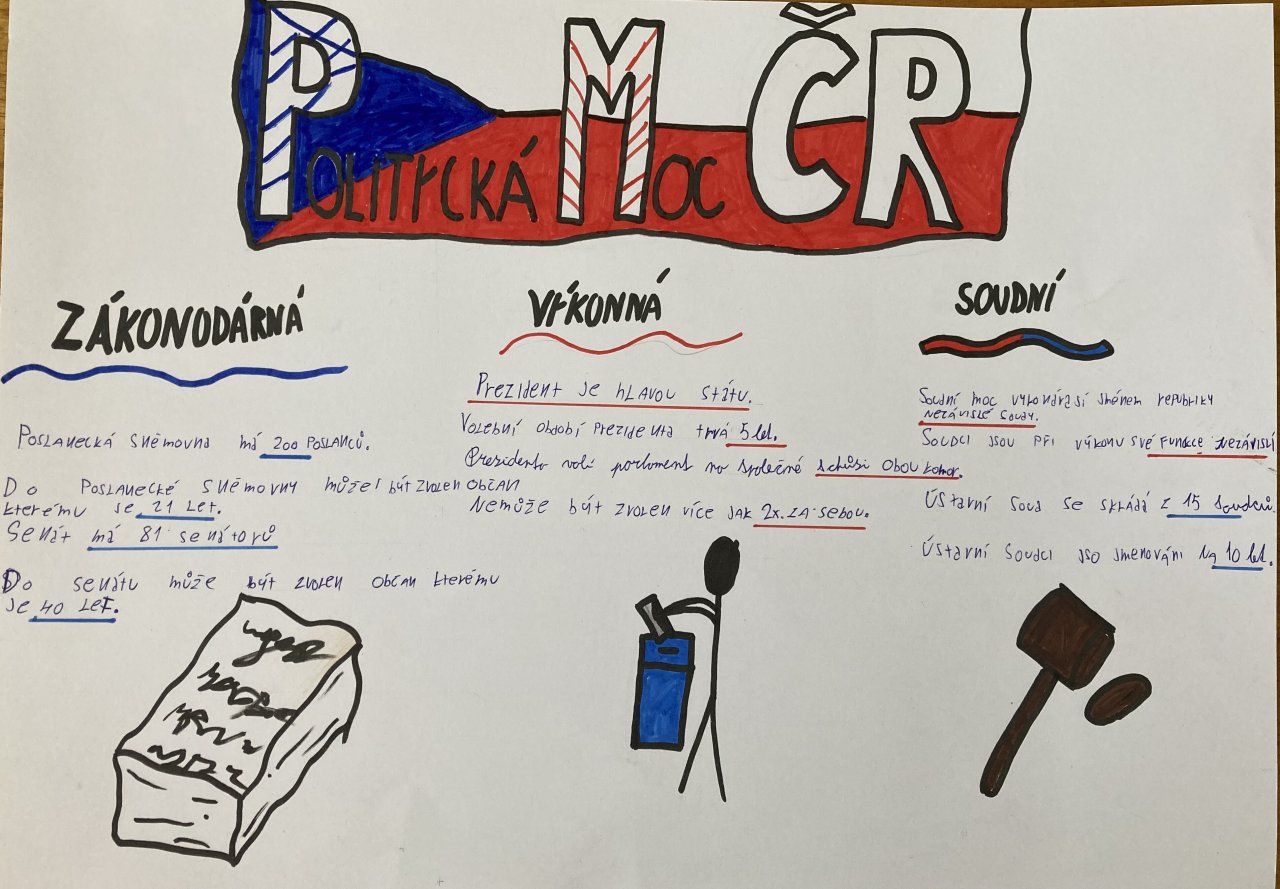 POLITICKÁ MOC ČR
ZÁKONODÁRNÁ
POSLANECKÁ SNĚMOVNA MÁ 200 POSLANCŮ.
DO POSLANECKÉ SNĚMOVNY MŮŽE BÝT ZVOLEN OBČAN
kterému je 21 LET.
SENÁT MÁ 81 SENÁTORŮ
DO SENÁTU MŮŽE BÝT ZVOLEN OBČAN kterému
JE 40 LET.
VÝKONNÁ
PREZIDENT JE HLAVOU STÁTU.
VOLEBNÍ OBDOBÍ PREZIDENTA TRVÁ 5 let.
Prezidenta volí parlament na společné schůzi obou komor.
NEMŮŽE BÝT ZVOLEN VÍCE JAK 2x ZA SEBOU.
SOUDNÍ
SOUDNÍ MOC VYKONÁVAJÍ JMÉNEM REPUBLIKY
NEZÁVISLÉ SOUDY.
SOUDCI JSOU PŘI VÝKONU SVÉ FUNKCE NEZÁVISLÍ
ÚSTAVNÍ SOUD SE SKLÁDÁ Z 15 soudců.
ÚSTAVNÍ SOUDCI JSO JMENOVÁNI NA 10 let.